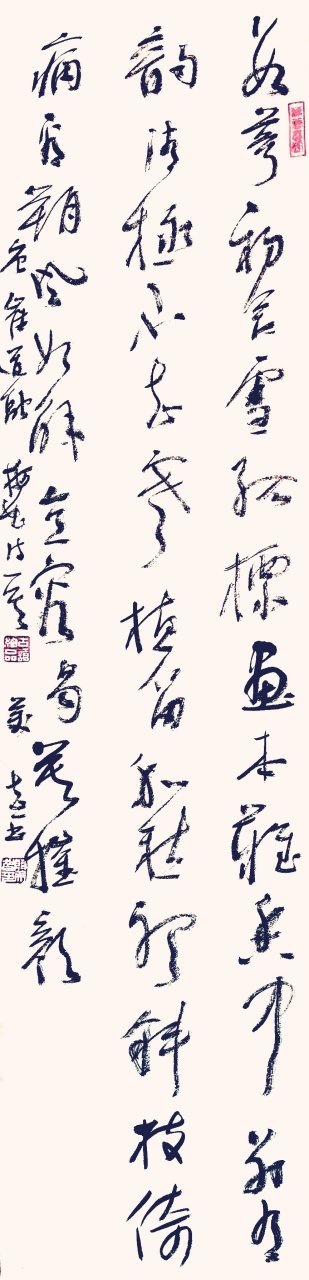 数萼初含雪孤標畫本難香中別有
韵清極不知寒横笛和愁聽斜枝倚
病看朔風如解意容易莫摧殘
崔道融梅花诗一首